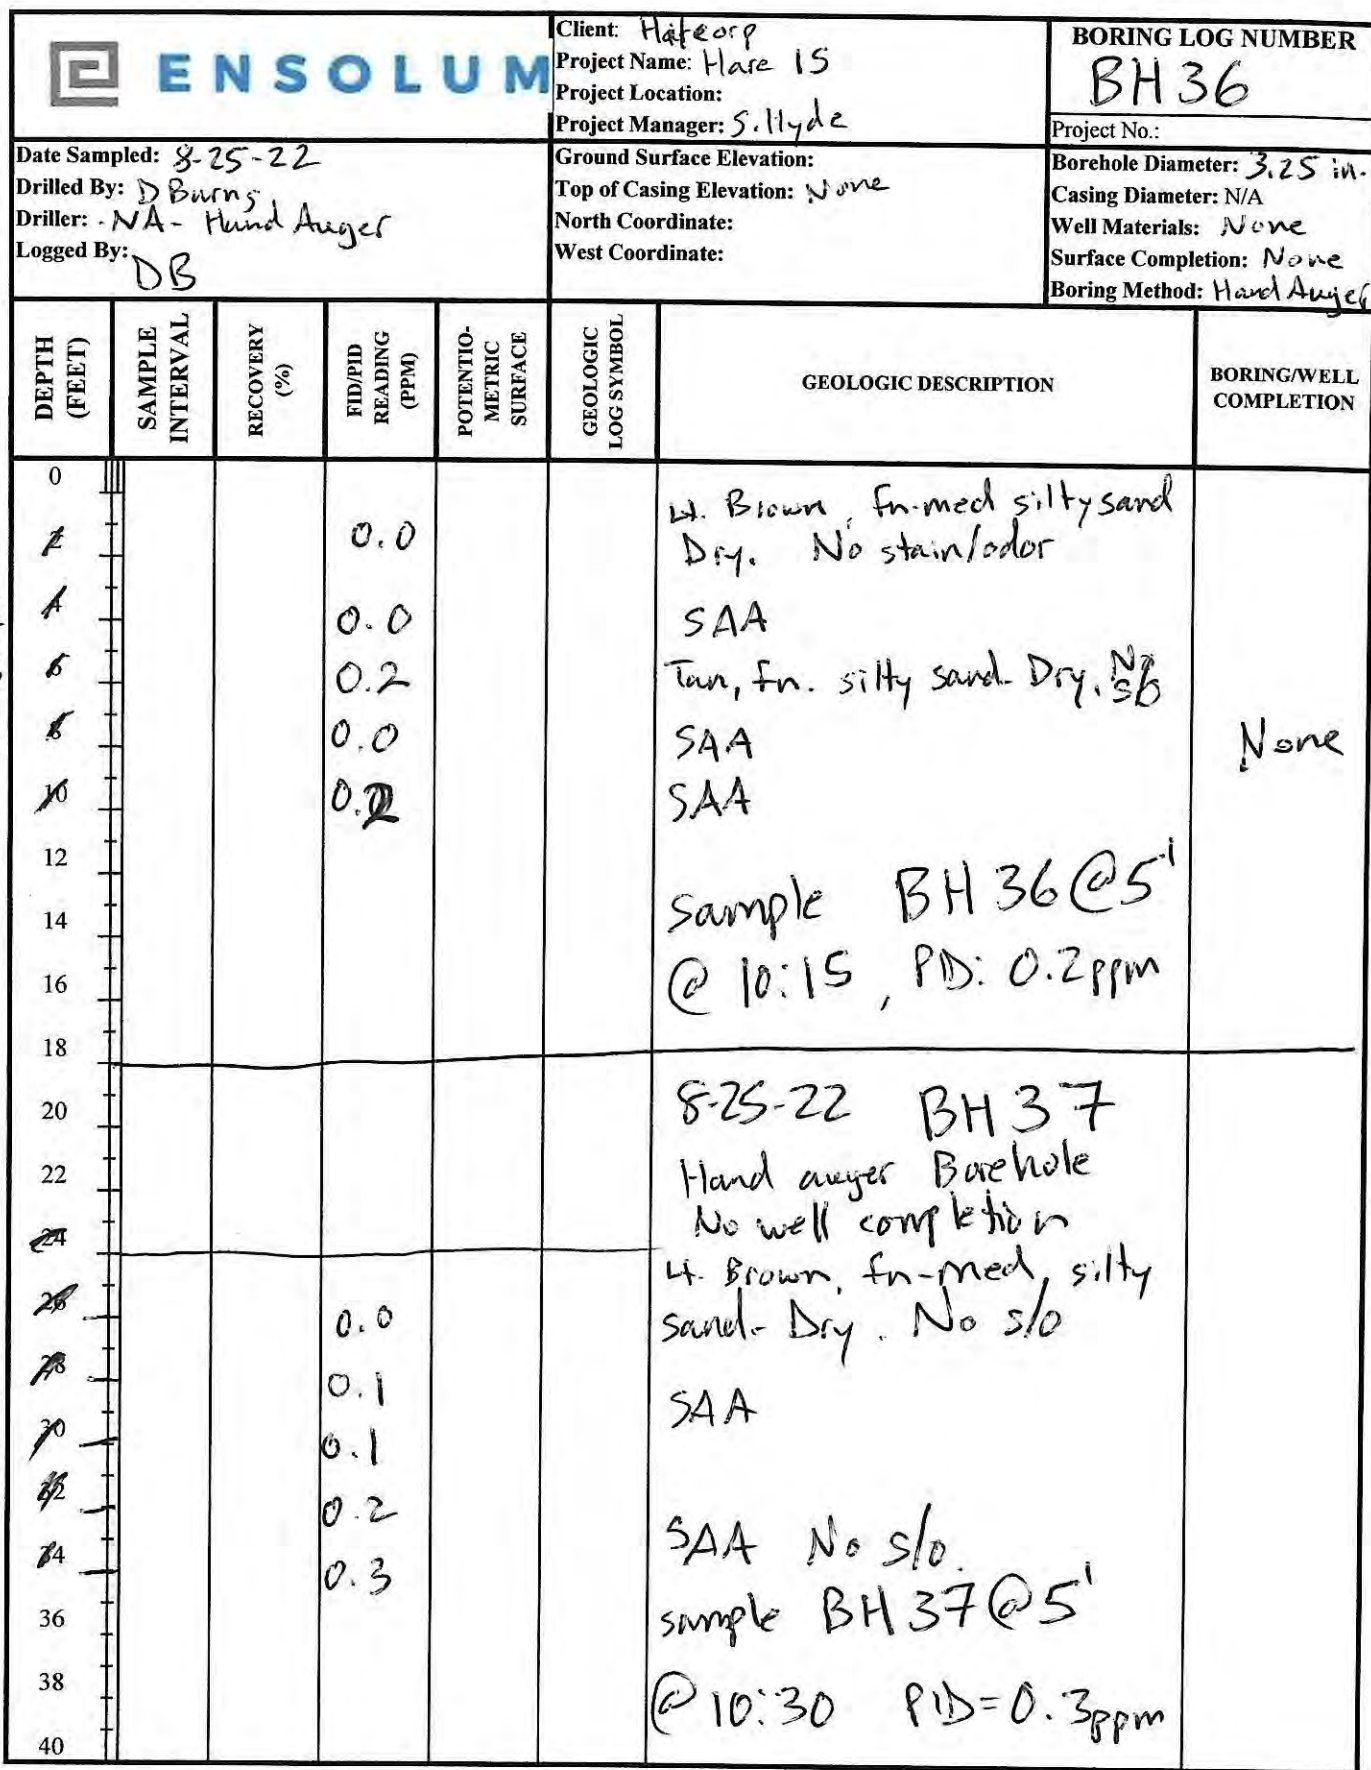 ENSOLUM
Client:
Project Name: Hare 15
Project Location:
Project Manager: S. Hyde
BORING LOG NUMBER
BH 36
Project No.:
Date Sampled: 8-25-22
Drilled By: D Burns
Driller: NA - Hand Auger
Logged By: DB
Ground Surface Elevation:
Top of Casing Elevation: None
North Coordinate:
West Coordinate:
Borehole Diameter: 3.25 in.
Casing Diameter: N/A
Well Materials: None
Surface Completion: None
Boring Method: Hand Auger
DEPTH (FEET)
SAMPLE INTERVAL
RECOVERY (%)
FID/PID READING (PPM)
POTENTIO-METRIC SURFACE
GEOLOGIC LOG SYMBOL
GEOLOGIC DESCRIPTION
BORING/WELL COMPLETION
0
Lt. Brown, fn-med silty sand
2 0.0 Dry. No stain/odor
4 0.0 SAA
6 0.2 Tan, fn. silty sand. Dry. No s/o
8 0.0 SAA None
10 0.2 SAA
12
sample BH 36 @ 5'
14
16 @ 10:15, PID: 0.2ppm
18
20 8-25-22 BH 37
22 Hand auger Borehole
No well completion
24
Lt. Brown, fn-med, silty
26 0.0 sand. Dry. No s/o
28 0.1 SAA
30 0.1
32 0.2
34 0.3 SAA No s/o.
36 sample BH 37 @ 5'
38 @ 10:30 PID = 0.3ppm
40